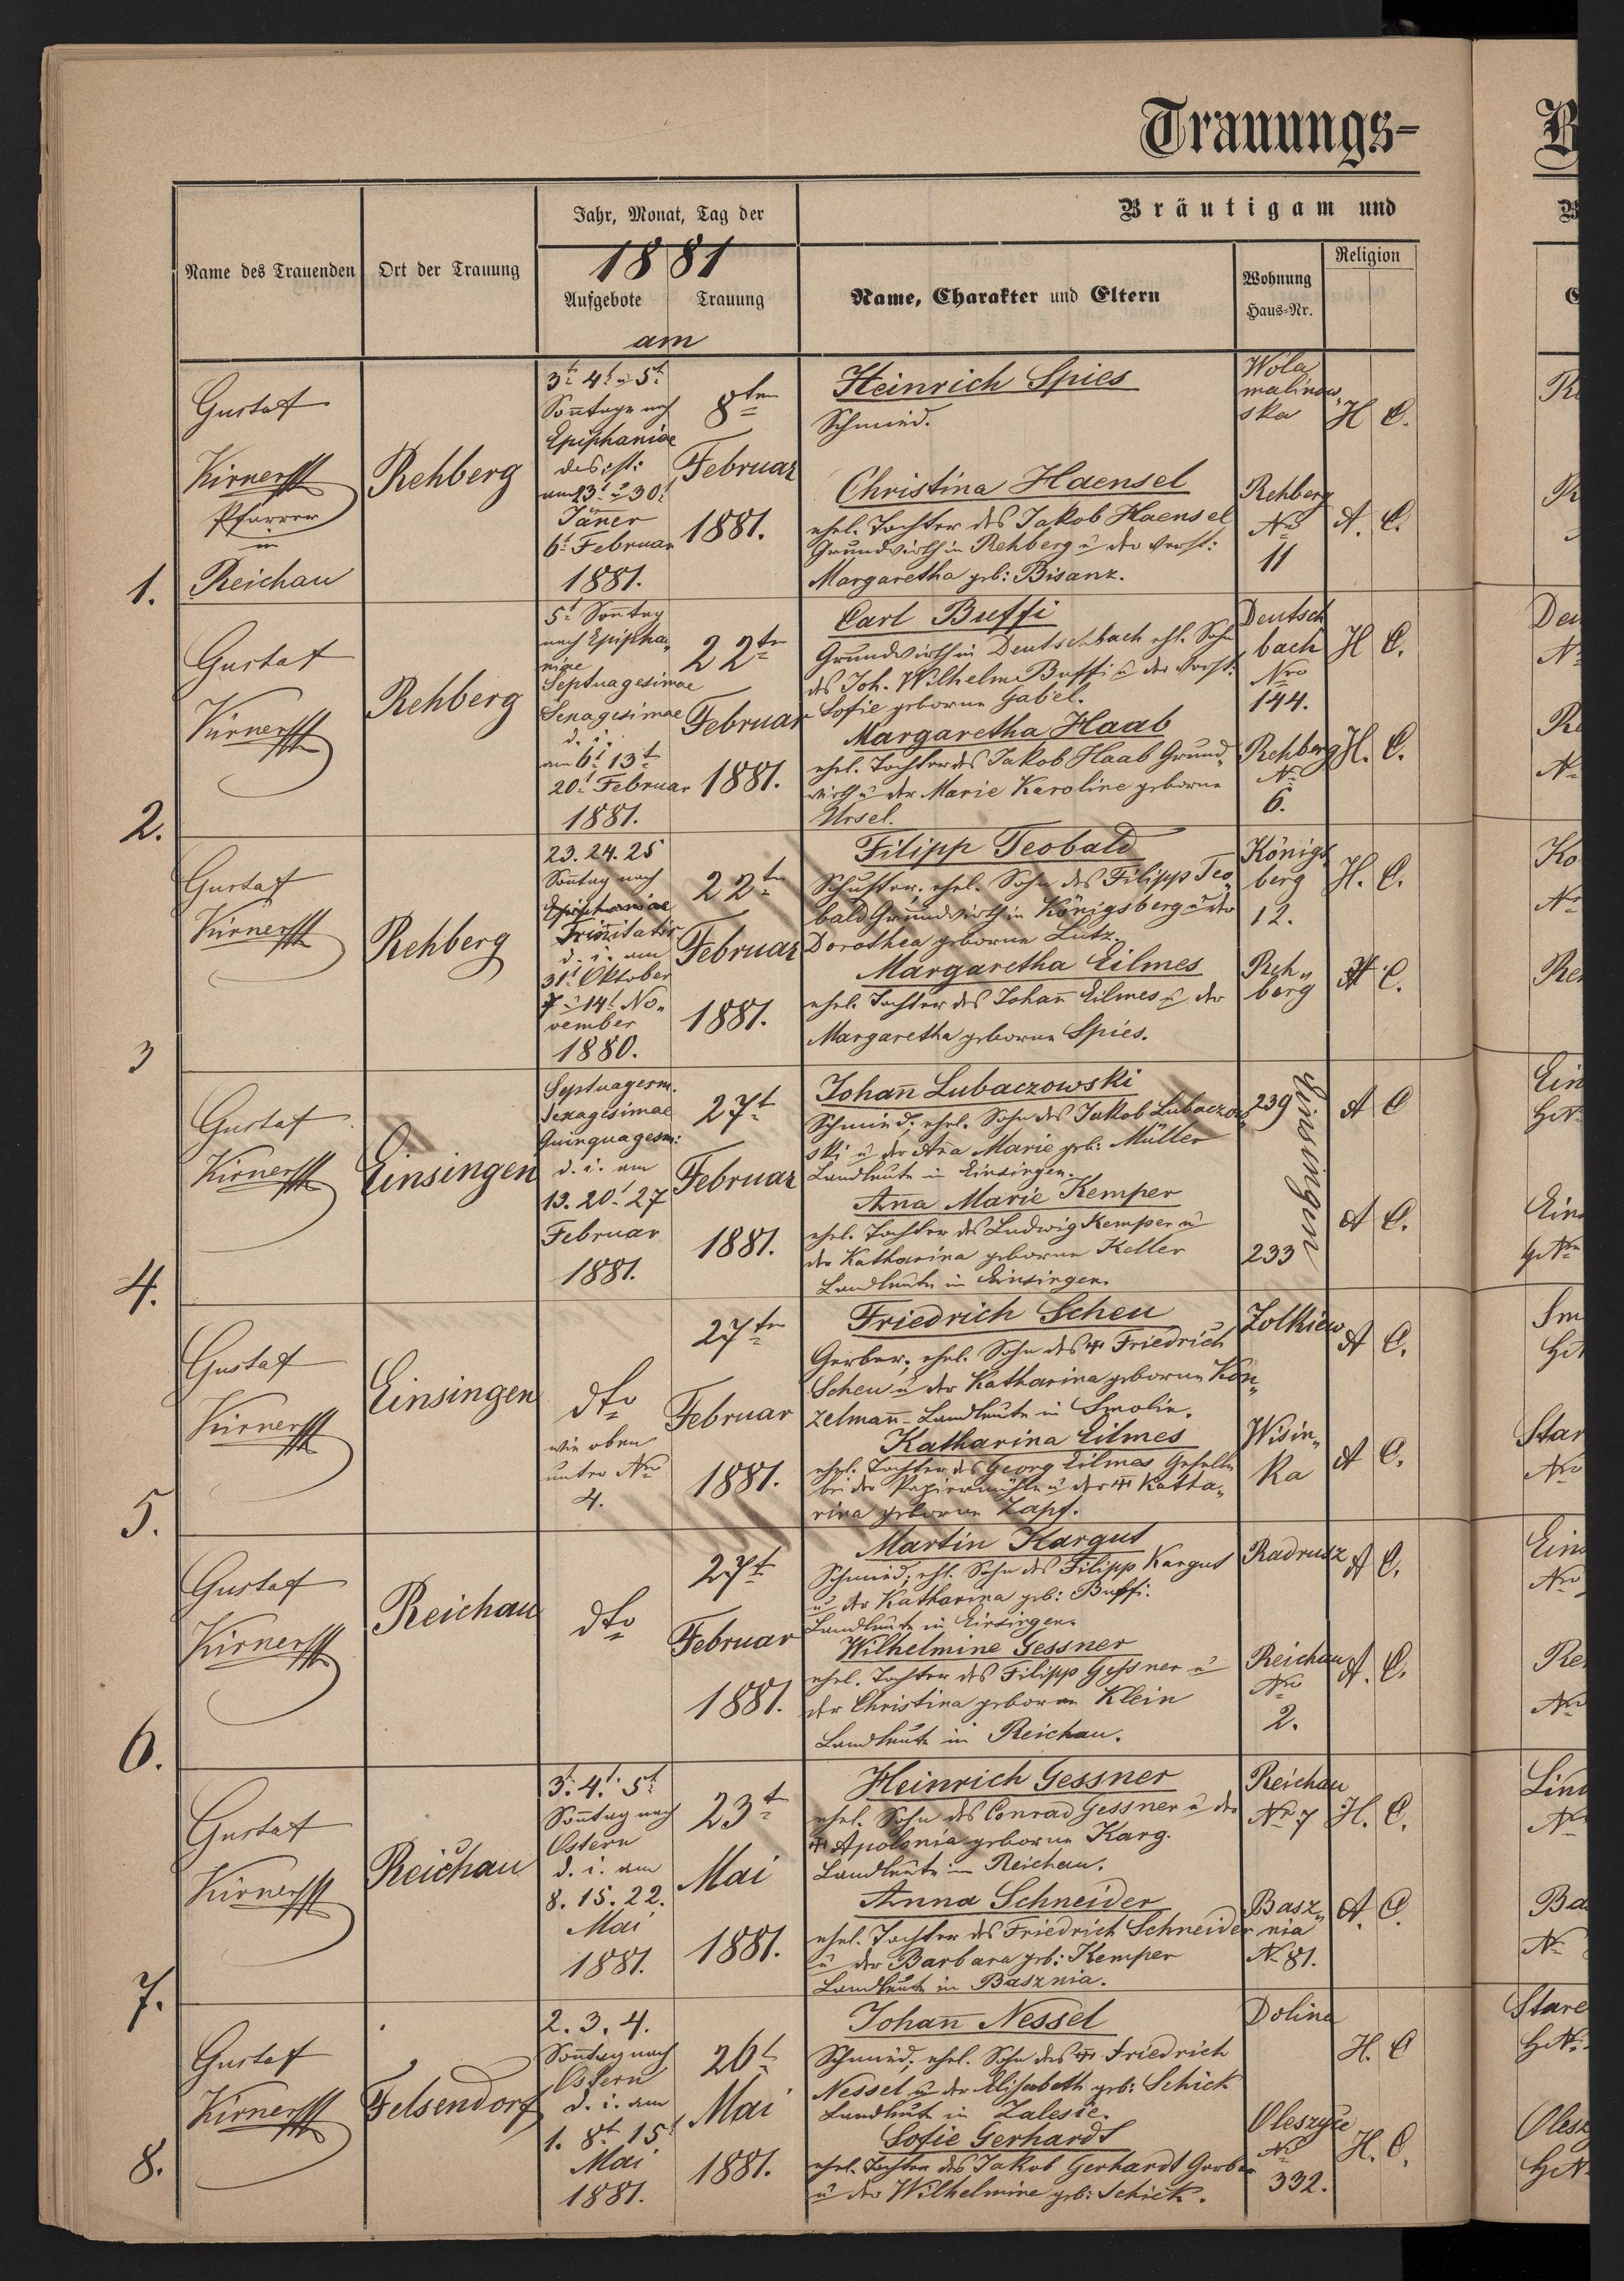 Trauungs-
Jahr, Monat, Tag der
Bräutigam und
Name des Trauenden
Ort der Trauung
1881
Aufgebote
Trauung
am
Name, Charakter und Eltern
Wohnung
Haus-Nr.
Religion
1.
Gustaf
Kirner
Pfarrer
in
Reichau
Rehberg
3t 4t u 5t
Sonntage nach
Epiphaniae
das ist:
am 23t u 30t
Jäner
6t Februar
1881.
8ten
Februar
1881.
Heinrich Spies
Schmied.
Christina Haensel
ehel. Tochter des Jakob Haensel
Grundwirth in Rehberg u der verst:
Margaretha geb: Bisanz.
Wola
malinow,
ska
H. C.
Rehberg
No
11
A. C.
2.
Gustaf
Kirner
Rehberg
5t Sonntag
nach Epipha,
niae
Septuagesimae
Sexagesimae
d. i.
am 6t 13t
20t Februar
1881.
22tn
Februar
1881.
Carl Buffi
Grundwirth in Deutschbach ehl. Sohn
des Joh. Wilhelm Buffi u der verst:
Sofie geborne Gabel.
Margaretha Haab
ehel. Tochter des Jakob Haab Grund,
wirth u der Marie Karoline geborne
Ursel.
Deutsch
bach
Nro
144.
H C.
Rehberg
No
6.
H. C.
3
Gustaf
Kirner
Rehberg
23. 24. 25
Sonntag nach
Epiphaniae
Trinitatis
d. i. am
31t Oktober
7 u 14t No,
vember
1880.
22tn
Februar
1881.
Filipp Teobald
Schuster, ehel. Sohn des Filipp Teo,
bald Grundwirth in Königsberg u der
Dorothea geborne Lutz.
Margaretha Eilmes
ehel. Tochter des Johann Eilmes u. der
Margaretha geborne Spies.
Königs
berg
12.
H. C.
Reh,
berg
H C.
4.
Gustaf
Kirner
Einsingen
Septuagesm.
Sexagesimae
Quinquagesm:
d. i. am
13. 20t 27
Februar
1881.
27t
Februar
1881.
Johann Lubaczowski
Schmied; ehel. Sohn des Jakob Lubaczow,
ski u der Ana Marie geb: Müller
Landleute in Einsingen.
Anna Marie Kemper
ehel. Tochter des Ludwig Kemper u
der Katharina geborne Keller
Landleute in Einsingen.
239
Einsingen
233
A C
A C.
5.
Gustaf
Kirner
Einsingen
dto
wie oben
unter Nro
4.
27tn
Februar
1881.
Friedrich Scheu
Gerber; ehel. Sohn des Friedrich
Scheu u der Katharina geborne Kon,
zelmann - Landleute in Smolin.
Katharina Eilmes
ehel. Tochter des Georg Eilmes Geselle
bei der Papiermühle u der Katha,
rina geborne Zapf.
Zolkiew
A C.
Wisin,
ka
A C.
6.
Gustaf
Kirner
Reichau
dto
27t
Februar
1881.
Martin Kargut
Schmied; ehl. Sohn des Filipp Kargut
u der Katharina geb: Buffi.
Landleute in Einsingen.
Wilhelmine Gessner
ehel. Tochter des Filipp Gessner u
der Christina geborne Klein
Landleute in Reichau.
Radrusz
A C.
Reichau
Nro
2.
A. C.
7.
Gustaf
Kirner
Reichau
3t. 4t. 5t
Sonntag nach
Ostern
d. i. am
8. 15. 22.
Mai
1881.
23t
Mai
1881.
Heinrich Gessner
ehel. Sohn des Conrad Gessner u der
Apolonia geborne Karg.
Landleute in Reichau.
Anna Schneider
ehel. Tochter des Friedrich Schneider
u der Barbara geb: Kemper
Landleute in Basznia.
Reichau
No 7
H. C.
Basz,
nia
No 81.
A. C.
8.
Gustaf
Kirner
Felsendorf
2. 3. 4.
Sonntag nach
Ostern
d. i. am
1. 8t 15t
Mai
1881.
26t
Mai
1881.
Johann Nessel
Schmied; ehel. Sohn des Friedrich
Nessel u der Elisabeth geb: Schick
Landleute in Zalesie.
Sofie Gerhardt
ehel. Tochter des Jakob Gerhardt Gerber
u der Wilhelmine geb: Schick.
Dolina
H. C
Oleszyce
No
332.
H. C.